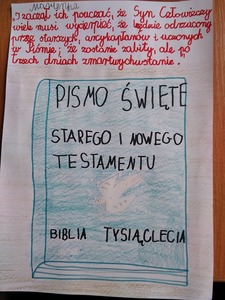 „I zaczął ich pouczać, że Syn Człowieczy
wiele musi wycierpieć, że będzie odrzucony
przez starszych, arcykapłanów i uczonych
w Piśmie; że zostanie zabity, ale po
trzech dniach zmartwychwstanie."
PISMO ŚWIĘTE
STAREGO I NOWEGO
TESTAMENTU
BIBLIA TYSIĄCLECIA